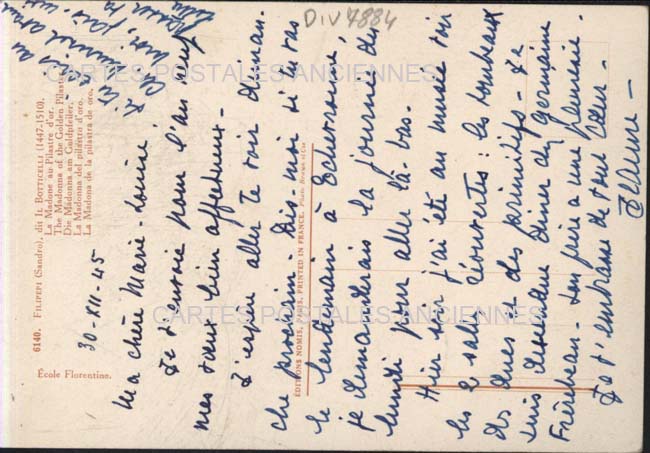 DIV 4884
CARTES POSTALES ANCIENNES
6140. FILIPEPI (Sandro), dit IL BOTTICELLI (1447-1510).
La Madone au Pilastre d'or.
The Madonna of the Golden Pilaster.
Die Madonna am Goldpfeiler.
La Madonna del pilastro d'oro.
La Madona de la pilastra de oro.
École Florentine.
ÉDITIONS NOMIS, PARIS. PRINTED IN FRANCE.
30-XII-45
Ma chère Marie-Louise
Je t'envoie pour l'an neuf
mes vœux bien affectueux-
J'espère aller te voir diman-
che prochain- Dis-moi si tu vas
le lendemain à
je demanderais la journée du
lundi pour aller là-bas.
Hier soir j'ai été au musée voir
les 2 salles réouvertes: les tombeaux
des ducs et des primitifs- Je
suis dîner chez Germaine
son père a une
Je t'embrasse de tout cœur-
CARTES POSTALES ANCIENNES